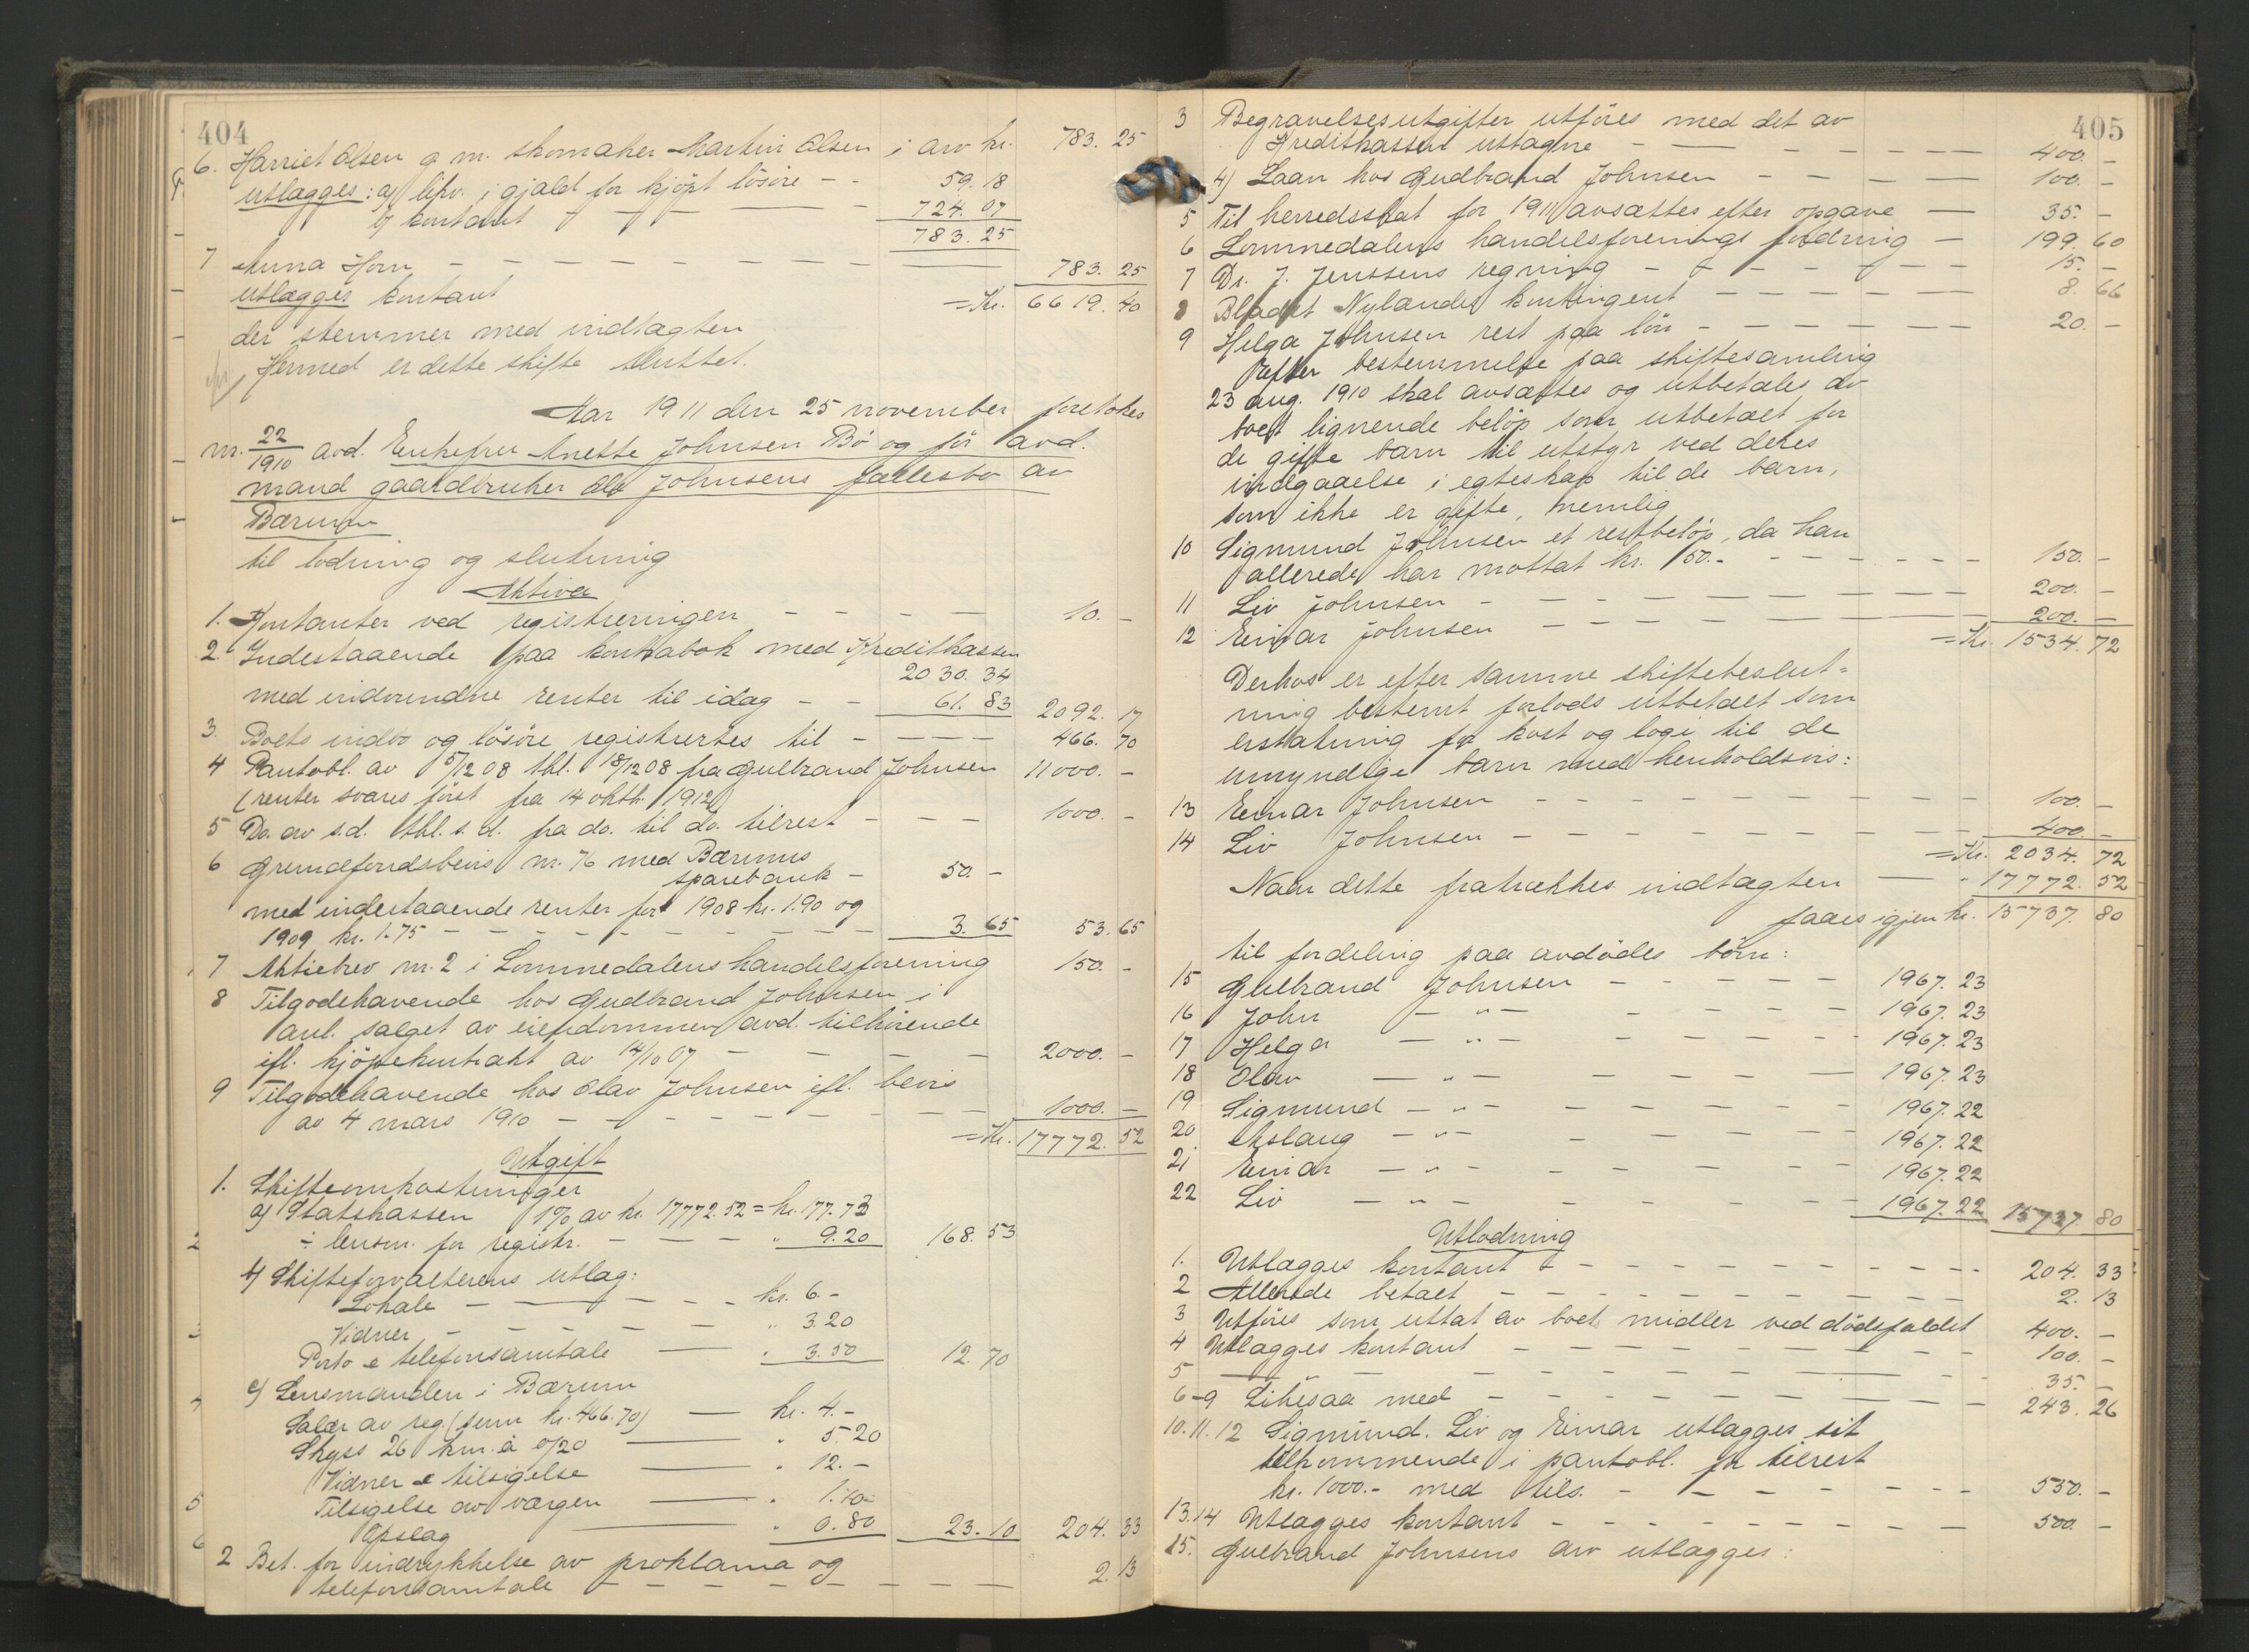 404
6. Harriet Olsen g. m. skomaker Martin Olsen i arv kr. 783.25
utlægges: a) lipv. i gjæld for kjöpt lösöre - - 59.18
b) kontant - - - 724.07
783.25
7 Anna Horn - - - - - - - 783.25
utlægges kontant =Kr. 6619.40
der stemmer med indtægten
Hermed er dette skifte sluttet.
Aar 1911 den 25 november foretokes
nr. 22/1910 avd. Enkefru Anette Johnsen Bö og för avd.
mand gaardbruker Ole Johnsens fællesbo av
Bærum
til lodning og slutning
Aktiva
1. Kontanter ved registreringen - - - - 10. -
2. Indestaaende paa kontrabok med Kreditkassen
2030.34
med indvundne renter til idag - - 61.83 2092.17
3. Boets indbo og lösöre registrertes til - - - - 466.70
4 Pantobl. av 5/12 08 tbl. 18/12 08 fra Gulbrand Johnsen 11000. -
(renter svares först fra 14 oktbr. 1912)
5 Do. av s.d. tbl. s.d. fra do. til do. tilrest - - - 1000. -
6 Grundfondsbevis nr. 76 med Bærums
sparebank - 50. -
med indestaaende renter for 1908 kr. 1.90 og
1909 kr. 1.75 - - - - - - - - 3.65 53.65
7 Aktiebrev nr. 2 i Lommedalens handelsforening 150. -
8 Tilgodehavende hos Gudbrand Johnsen i
anl. salget av eiendommen avd. tilhörende
ifl. kjöpekontrakt av 14/10 07 - - - - 2000. -
9 Tilgodehavende hos Olav Johnsen ifl. bevis
av 4 mars 1910 - - - - - - - - 1000. -
=Kr. 17772.52
Utgift
1. Skifteomkostninger
a) Statskassen 1% av kr. 17772.52 = kr. 177.73
÷ lensm. for registr. - - - " 9.20 168.53
b) Skifteforvalterens utlag:
Lokale - - - - kr. 6.-
Vidner - - - - " 3.20
Porto & telefonsamtale - " 3.50 12.70
c) Lensmanden i Bærum
Salær av reg. (sum kr. 466.70) - kr. 4.-
Skyss 26 km. à 0/20 - " 5.20
Vidner & tilsigelse - " 12.-
Tilsigelse av værgen - " 1.10
Opslag - " 0.80 23.10 204.33
2 Bet. for indrykkelse av proklama og
telefonsamtale - - - - - - - 2.13
405
3 Begravelsesutgifter utföres med det av
Kreditkassen uttagne - - - - - - 400. -
4) Laan hos Gudbrand Johnsen - - - - 100. -
5 Til herredsskat for 1911 avsættes efter opgave - 35. -
6 Lommedalens handelsforenings fordring - 199.60
7 Dr. J. Jenssens regning - - - - - - 15. -
8 Bladet Nylandes kontingent - - - - - 8.66
9 Helga Johnsen rest paa lön - - - - - 20. -
Efter bestemmelse paa skiftesamling
23 aug. 1910 skal avsættes og utbetales av
boet lignende belöp som utbetalt for
de gifte barn til utstyr ved deres
indgaaelse i egteskap til de barn,
som ikke er gifte, nemlig
10 Sigmund Johnsen et restbelöp, da han
allerede har mottat kr. 50.- - - - - - 150. -
11 Liv Johnsen - - - - - - - - 200. -
12 Einar Johnsen - - - - - - - 200. -
=Kr. 1534.72
Derhos er efter samme skiftebeslut=
ning bestemt forlods utbetalt som
erstatning for kost og logi til de
umyndige barn med henholdsvis:
13 Einar Johnsen - - - - - - - - 100. -
14 Liv Johnsen - - - - - - - - 400. -
=Kr. 2034.72
Naar dette fratrækkes indtægten - " 17772.52
faaes igjen kr. 15737.80
til fordeling paa avdödes börn:
15 Gulbrand Johnsen - - - - - 1967.23
16 John - " - - - - - 1967.23
17 Helga - " - - - - - 1967.23
18 Olav - " - - - - - 1967.23
19 Sigmund - " - - - - - 1967.22
20 Aslaug - " - - - - - 1967.22
21 Einar - " - - - - - 1967.22
22 Liv - " - - - - - 1967.22 15737.80
Utlodning
1. Utlægges kontant - - - - - - - - 204.33
2 Allerede betalt - - - - - - - - 2.13
3 Utföres som uttat av boets midler ved dödsfaldet 400. -
4 Utlægges kontant - - - - - - - - 100. -
5 - - - - - - - - 35. -
6-9 Likesaa med - - - - - - - - 243.26
10.11.12 Sigmund. Liv og Einar utlægges sit
tilkommende i pantobl. for tilrest
kr. 1000.- med tils. - - - - - - 550. -
13.14 Utlægges kontant - - - - - - - - 500. -
15. Gulbrand Johnsens arv utlægges: